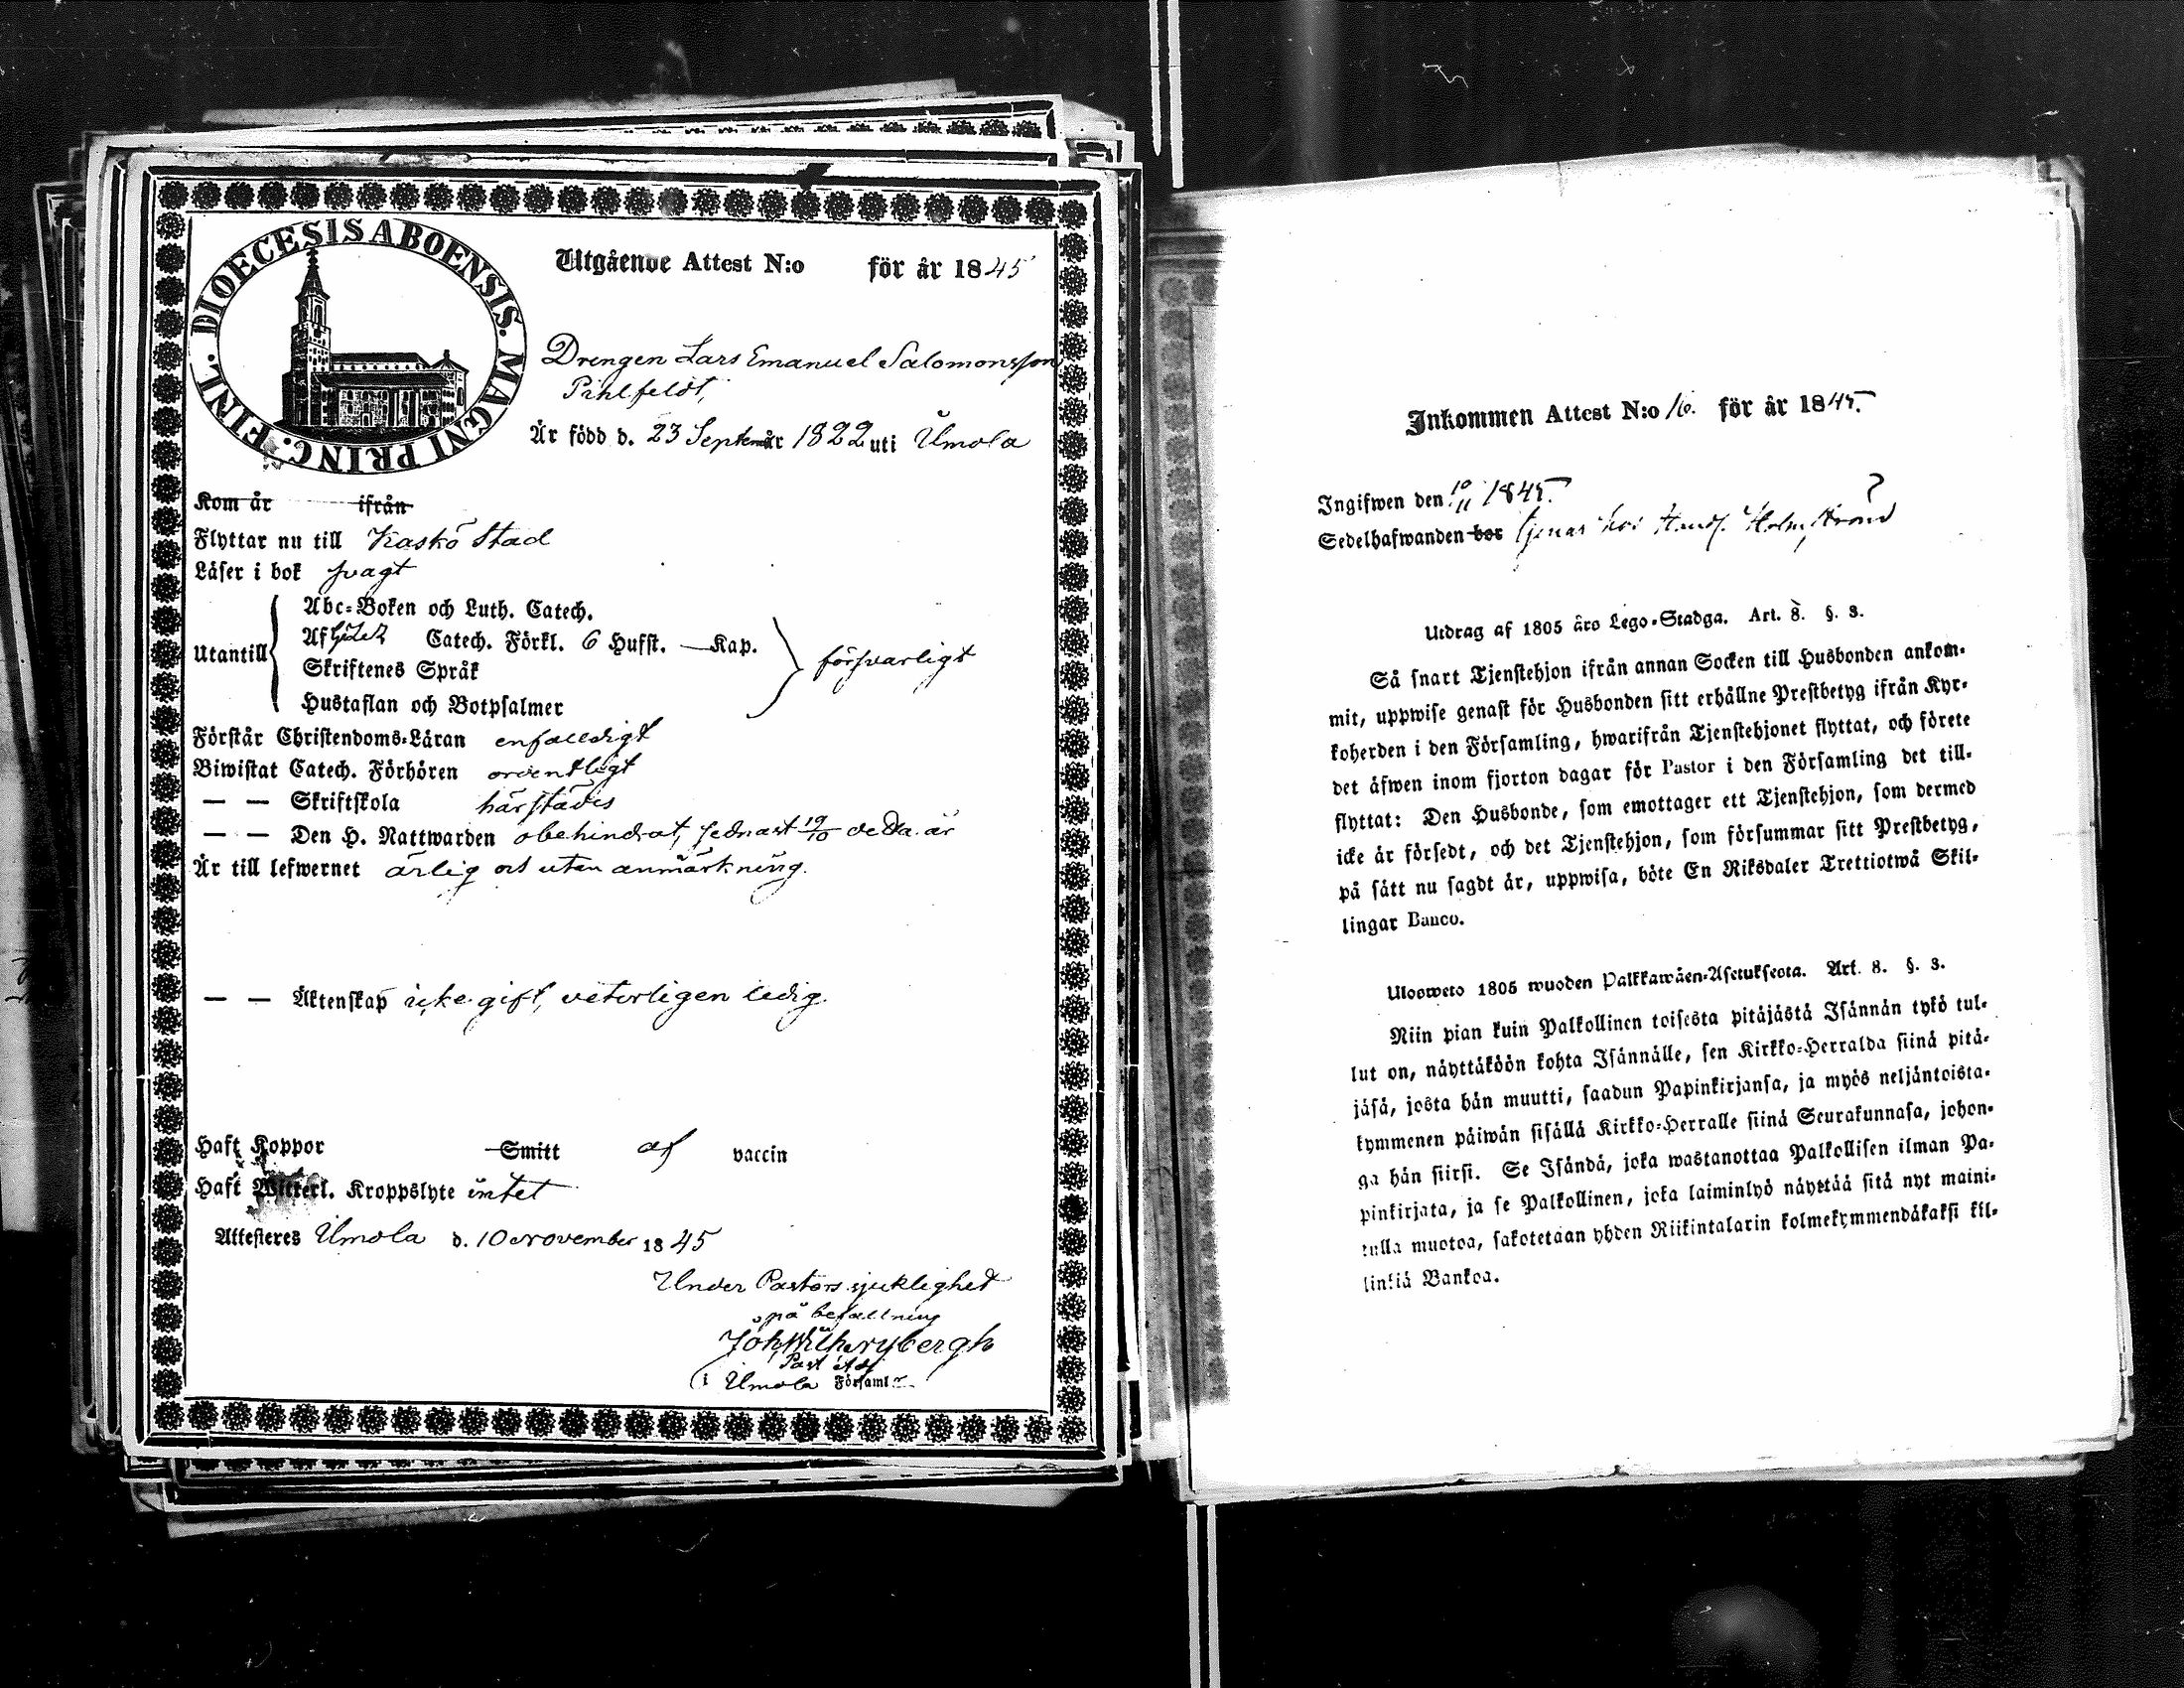 DIOECESIS ABOENSIS. MAGNI PRINC. FINL.
Utgående Attest N:o för år 1845
Drengen Lars Emanuel Salomonsson
Pihlfeldt,
Är född d. 23 September 1822 uti Ilmola
Kom år ifrån
Flyttar nu till Kaskö Stad
Läser i bok svagt
Utantill
Abc-Boken och Luth. Catech.
Af Catech. Förkl. 6 Hufst. — Kap.
Skriftenes Språk
Hustaflan och Botpsalmer
försvarligt
Förstår Christendoms-Läran enfaldigt
Biwistat Catech. Förhören ordentligt
— — Skriftskola härstädes
— — Den H. Nattwarden obehindrat, sednast 19/10 detta år
Är till lefwernet ärlig och utan anmärkning.
— — Äktenskap icke gift, veterligen ledig.
Haft Koppor Smitt af vaccin
Haft Witterl. Kroppslyte intet
Attesteres Ilmola d. 10 November 1845
Under Pastors sjuklighet
på befallning
Joh. Wilh. Nybergh
Past. Adj.
i Ilmola Församl.
Inkommen Attest N:o 16. för år 1845.
Ingifwen den 10/11 1845.
Sedelhafwanden bor tjenar hos Handl. Holmström
Utdrag af 1805 års Lego-Stadga. Art. 8. §. 3.
Så snart Tjenstehjon ifrån annan Socken till Husbonden ankom-
mit, uppwise genast för Husbonden sitt erhållne Prestbetyg ifrån Kyr-
koherden i den Församling, hwarifrån Tjenstehjonet flyttat, och förete
det äfwen inom fjorton dagar för Pastor i den Församling det till-
flyttat: Den Husbonde, som emottager ett Tjenstehjon, som dermed
icke är försedt, och det Tjenstehjon, som försummar sitt Prestbetyg,
på sätt nu sagdt är, uppwisa, böte En Riksdaler Trettiotwå Skil-
lingar Banco.
Ulosweto 1805 wuoden Palkkawäen-Asetuksesta. Art. 8. §. 3.
Niin pian kuin Palkollinen toisesta pitäjästä Isännän tykö tul-
lut on, näyttäköön kohta Isännälle, sen Kirkko-Herralda siinä pitä-
jäsä, josta hän muutti, saadun Papinkirjansa, ja myös neljäntoista-
kymmenen päiwän sisällä Kirkko-Herralle siinä Seurakunnasa, johon-
ga hän siirsi. Se Isändä, joka wastanottaa Palkollisen ilman Pa-
pinkirjata, ja se Palkollinen, joka laiminlyö näyttää sitä nyt maini-
tulla muotoa, sakotetaan yhden Riikintalarin kolmekymmendäkaksi kil-
linkiä Bankoa.